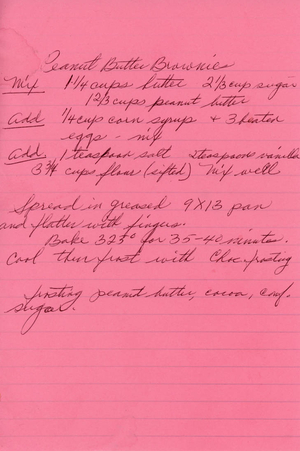 Peanut Butter Brownies
Mix 1 1/4 cups butter 2 1/3 cup sugar
1 2/3 cups peanut butter
Add 1/4 cup corn syrup + 3 beaten
eggs - mix
Add 1 teaspoon salt teaspoons vanilla
3 3/4 cups flour (sifted) Mix well
Spread in greased 9X13 pan
and flatten with fingers.
Bake 325° for 35-40 minutes.
Cool then frost with Choc frosting
frosting peanut butter, cocoa, conf.
sugar.